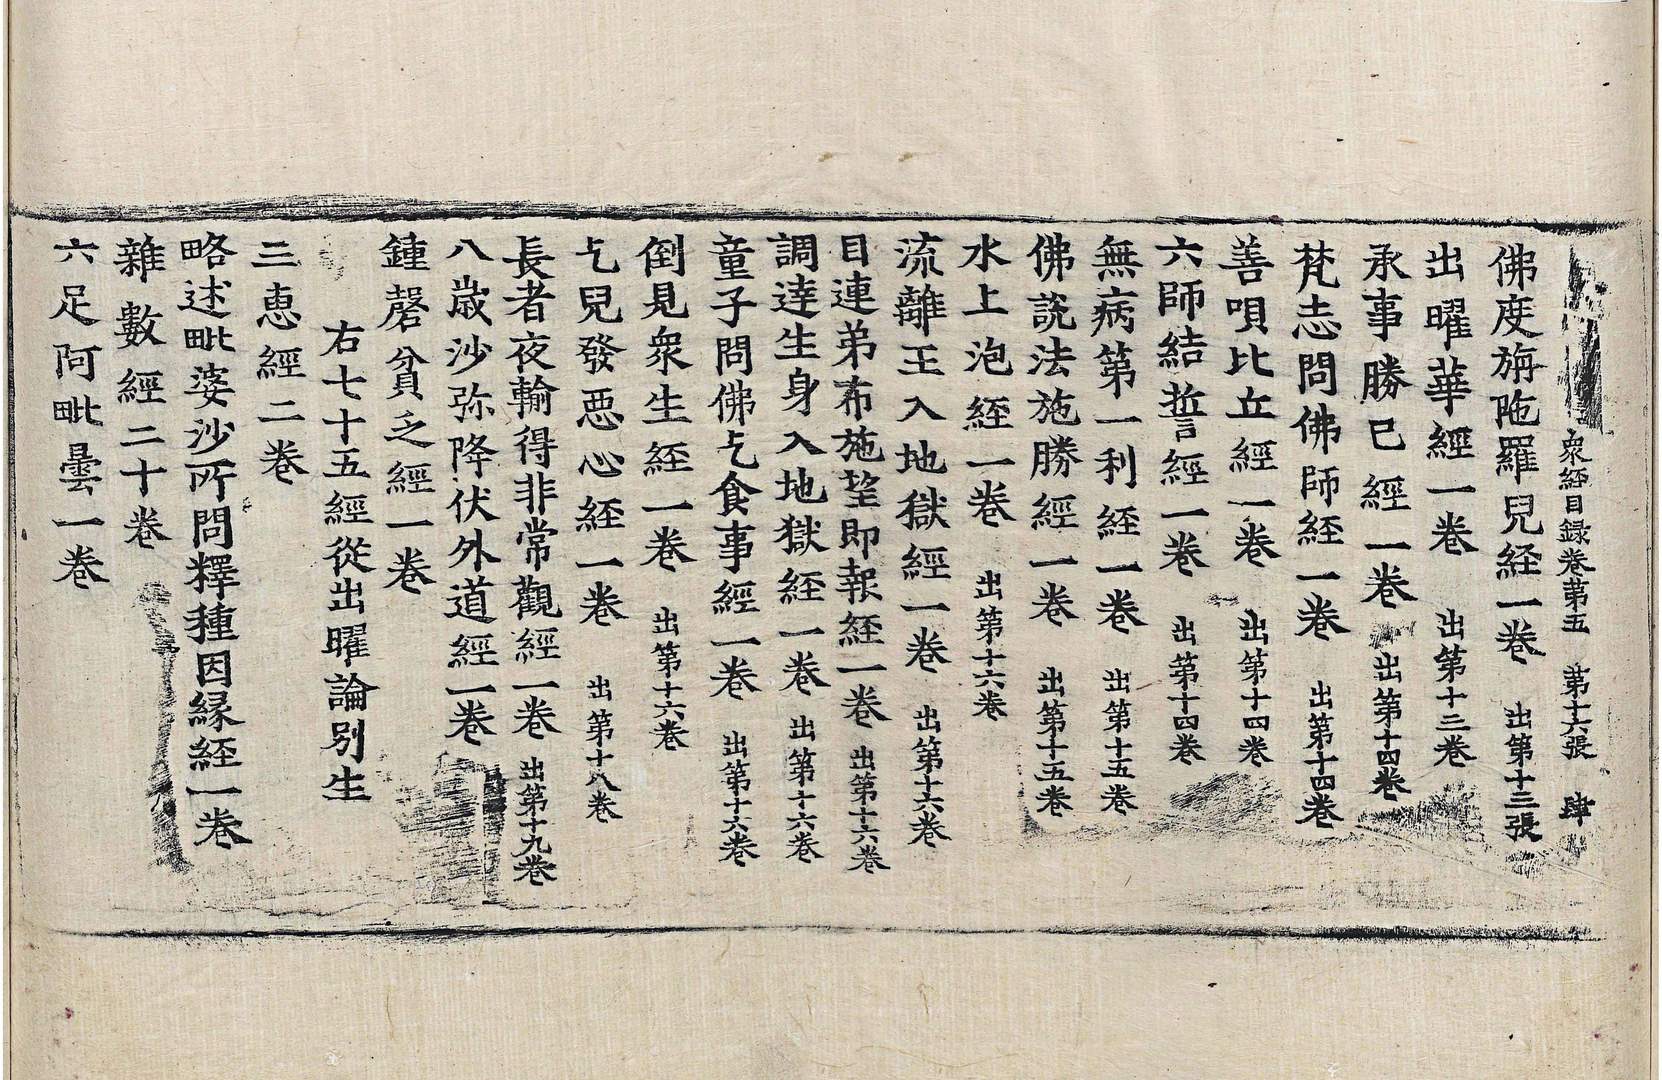 衆経目録卷第五　第十六張　肆
佛度旃陁羅兒経一卷　出第十三張
出曜華經一卷　出第十三卷
承事勝已經一卷　出第十四卷
梵志問佛師経一卷　出第十四卷
善唄比丘經一卷　出第十四卷
六師結誓經一卷　出第十四卷
無病第一利経一卷　出第十五卷
佛說法施勝經一卷　出第十五卷
水上泡経一卷　出第十六卷
流離王入地獄經一卷　出第十六卷
目連弟布施望即報経一卷　出第十六卷
調達生身入地獄経一卷　出第十六卷
童子問佛乞食事經一卷　出第十六卷
倒見衆生経一卷　出第十六卷
乞兒發惡心経一卷　出第十八卷
長者夜輸得非常觀經一卷　出第十九卷
八歲沙弥降伏外道經一卷
鍾磬貧乏經一卷
右七十五經從出曜論别生
三恵經二卷
略述毗婆沙所問釋種因縁経一卷
雜數經二十卷
六足阿毗曇一卷